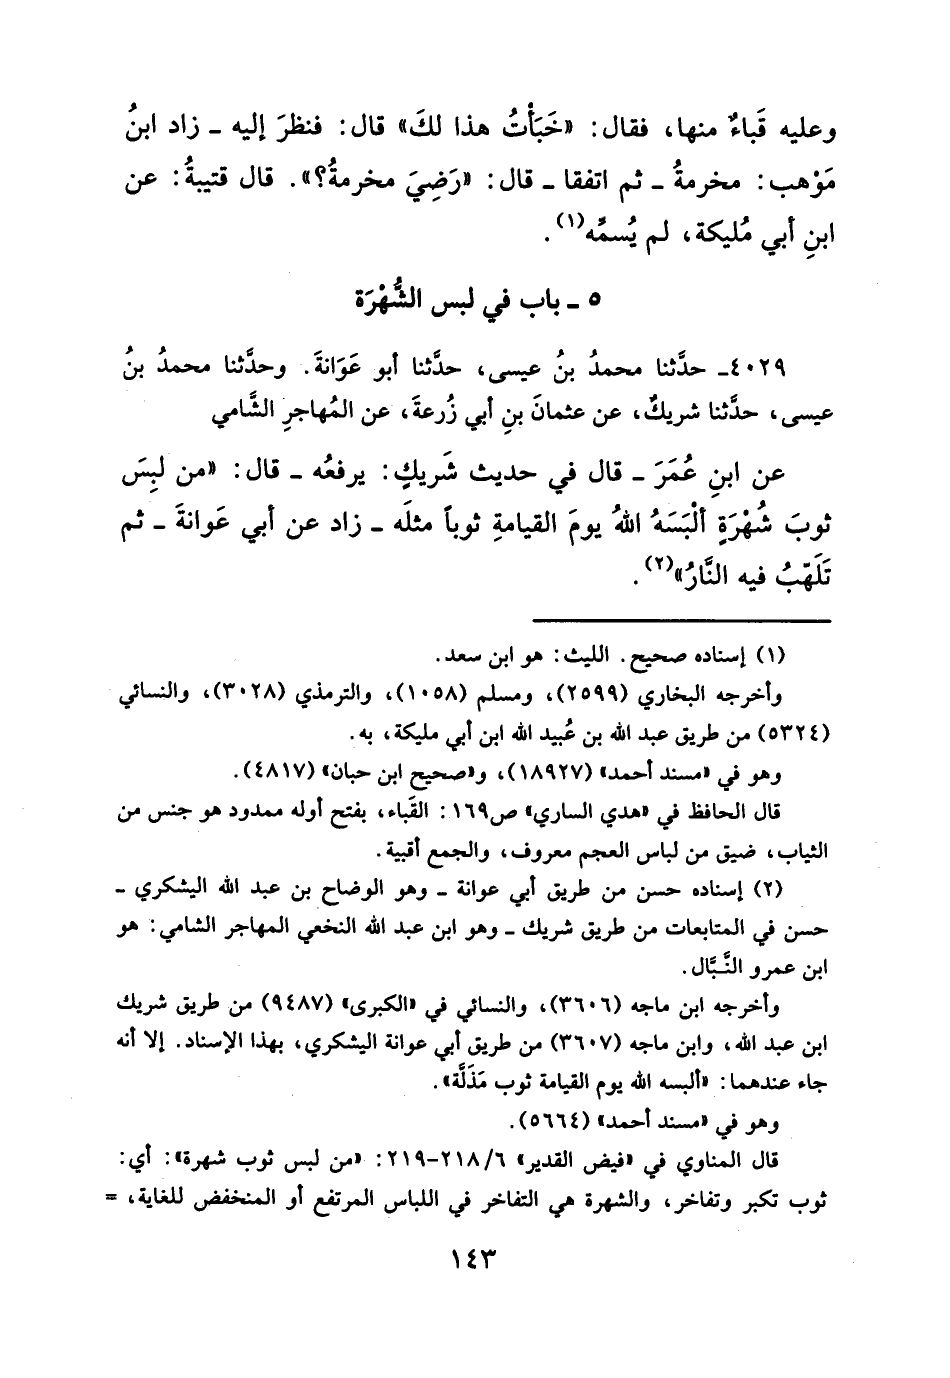 وعليه قَباءٌ منها، فقال: «خَبَأْتُ هذا لكَ» قال: فنظرَ إليه ـ زاد ابنُ
مَوْهب: مخرمةُ ـ ثم اتفقا ـ قال: «رَضِيَ مخرمةُ؟». قال قتيبةُ: عن
ابنِ أبي مُليكة، لم يُسمِّه(١).
٥ ـ باب في لبس الشُّهْرَة
٤٠٢٩ـ حدَّثنا محمدُ بنُ عيسى، حدَّثنا أبو عَوَانةَ. وحدَّثنا محمدُ بنُ
عيسى، حدَّثنا شريكٌ، عن عثمانَ بنِ أبي زُرعةَ، عن المُهاجرِ الشَّامي
عن ابنِ عُمَرَ ـ قال في حديث شَريكٍ: يرفعُه ـ قال: «من لبِسَ
ثوبَ شُهْرَةٍ ألْبَسَهُ اللهُ يومَ القيامةِ ثوباً مثلَه ـ زاد عن أبي عَوانةَ ـ ثم
تَلَهّبُ فيه النَّارُ»(٢).
(١) إسناده صحيح. الليث: هو ابن سعد.
وأخرجه البخاري (٢٥٩٩)، ومسلم (١٠٥٨)، والترمذي (٣٠٢٨)، والنسائي
(٥٣٢٤) من طريق عبد الله بن عُبيد الله ابن أبي مليكة، به.
وهو في «مسند أحمد» (١٨٩٢٧)، و«صحيح ابن حبان» (٤٨١٧).
قال الحافظ في «هدي الساري» ص١٦٩: القَباء، بفتح أوله ممدود هو جنس من
الثياب، ضيق من لباس العجم معروف، والجمع أقبية.
(٢) إسناده حسن من طريق أبي عوانة ـ وهو الوضاح بن عبد الله اليشكري ـ
حسن في المتابعات من طريق شريك ـ وهو ابن عبد الله النخعي المهاجر الشامي: هو
ابن عمرو النَّبَّال.
وأخرجه ابن ماجه (٣٦٠٦)، والنسائي في «الكبرى» (٩٤٨٧) من طريق شريك
ابن عبد الله، وابن ماجه (٣٦٠٧) من طريق أبي عوانة اليشكري، بهذا الإسناد. إلا أنه
جاء عندهما: «ألبسه الله يوم القيامة ثوب مَذَلَّة».
وهو في «مسند أحمد» (٥٦٦٤).
قال المناوي في «فيض القدير» ٦/ ٢١٨-٢١٩: «من لبس ثوب شهرة»: أي:
ثوب تكبر وتفاخر، والشهرة هي التفاخر في اللباس المرتفع أو المنخفض للغاية، =
١٤٣